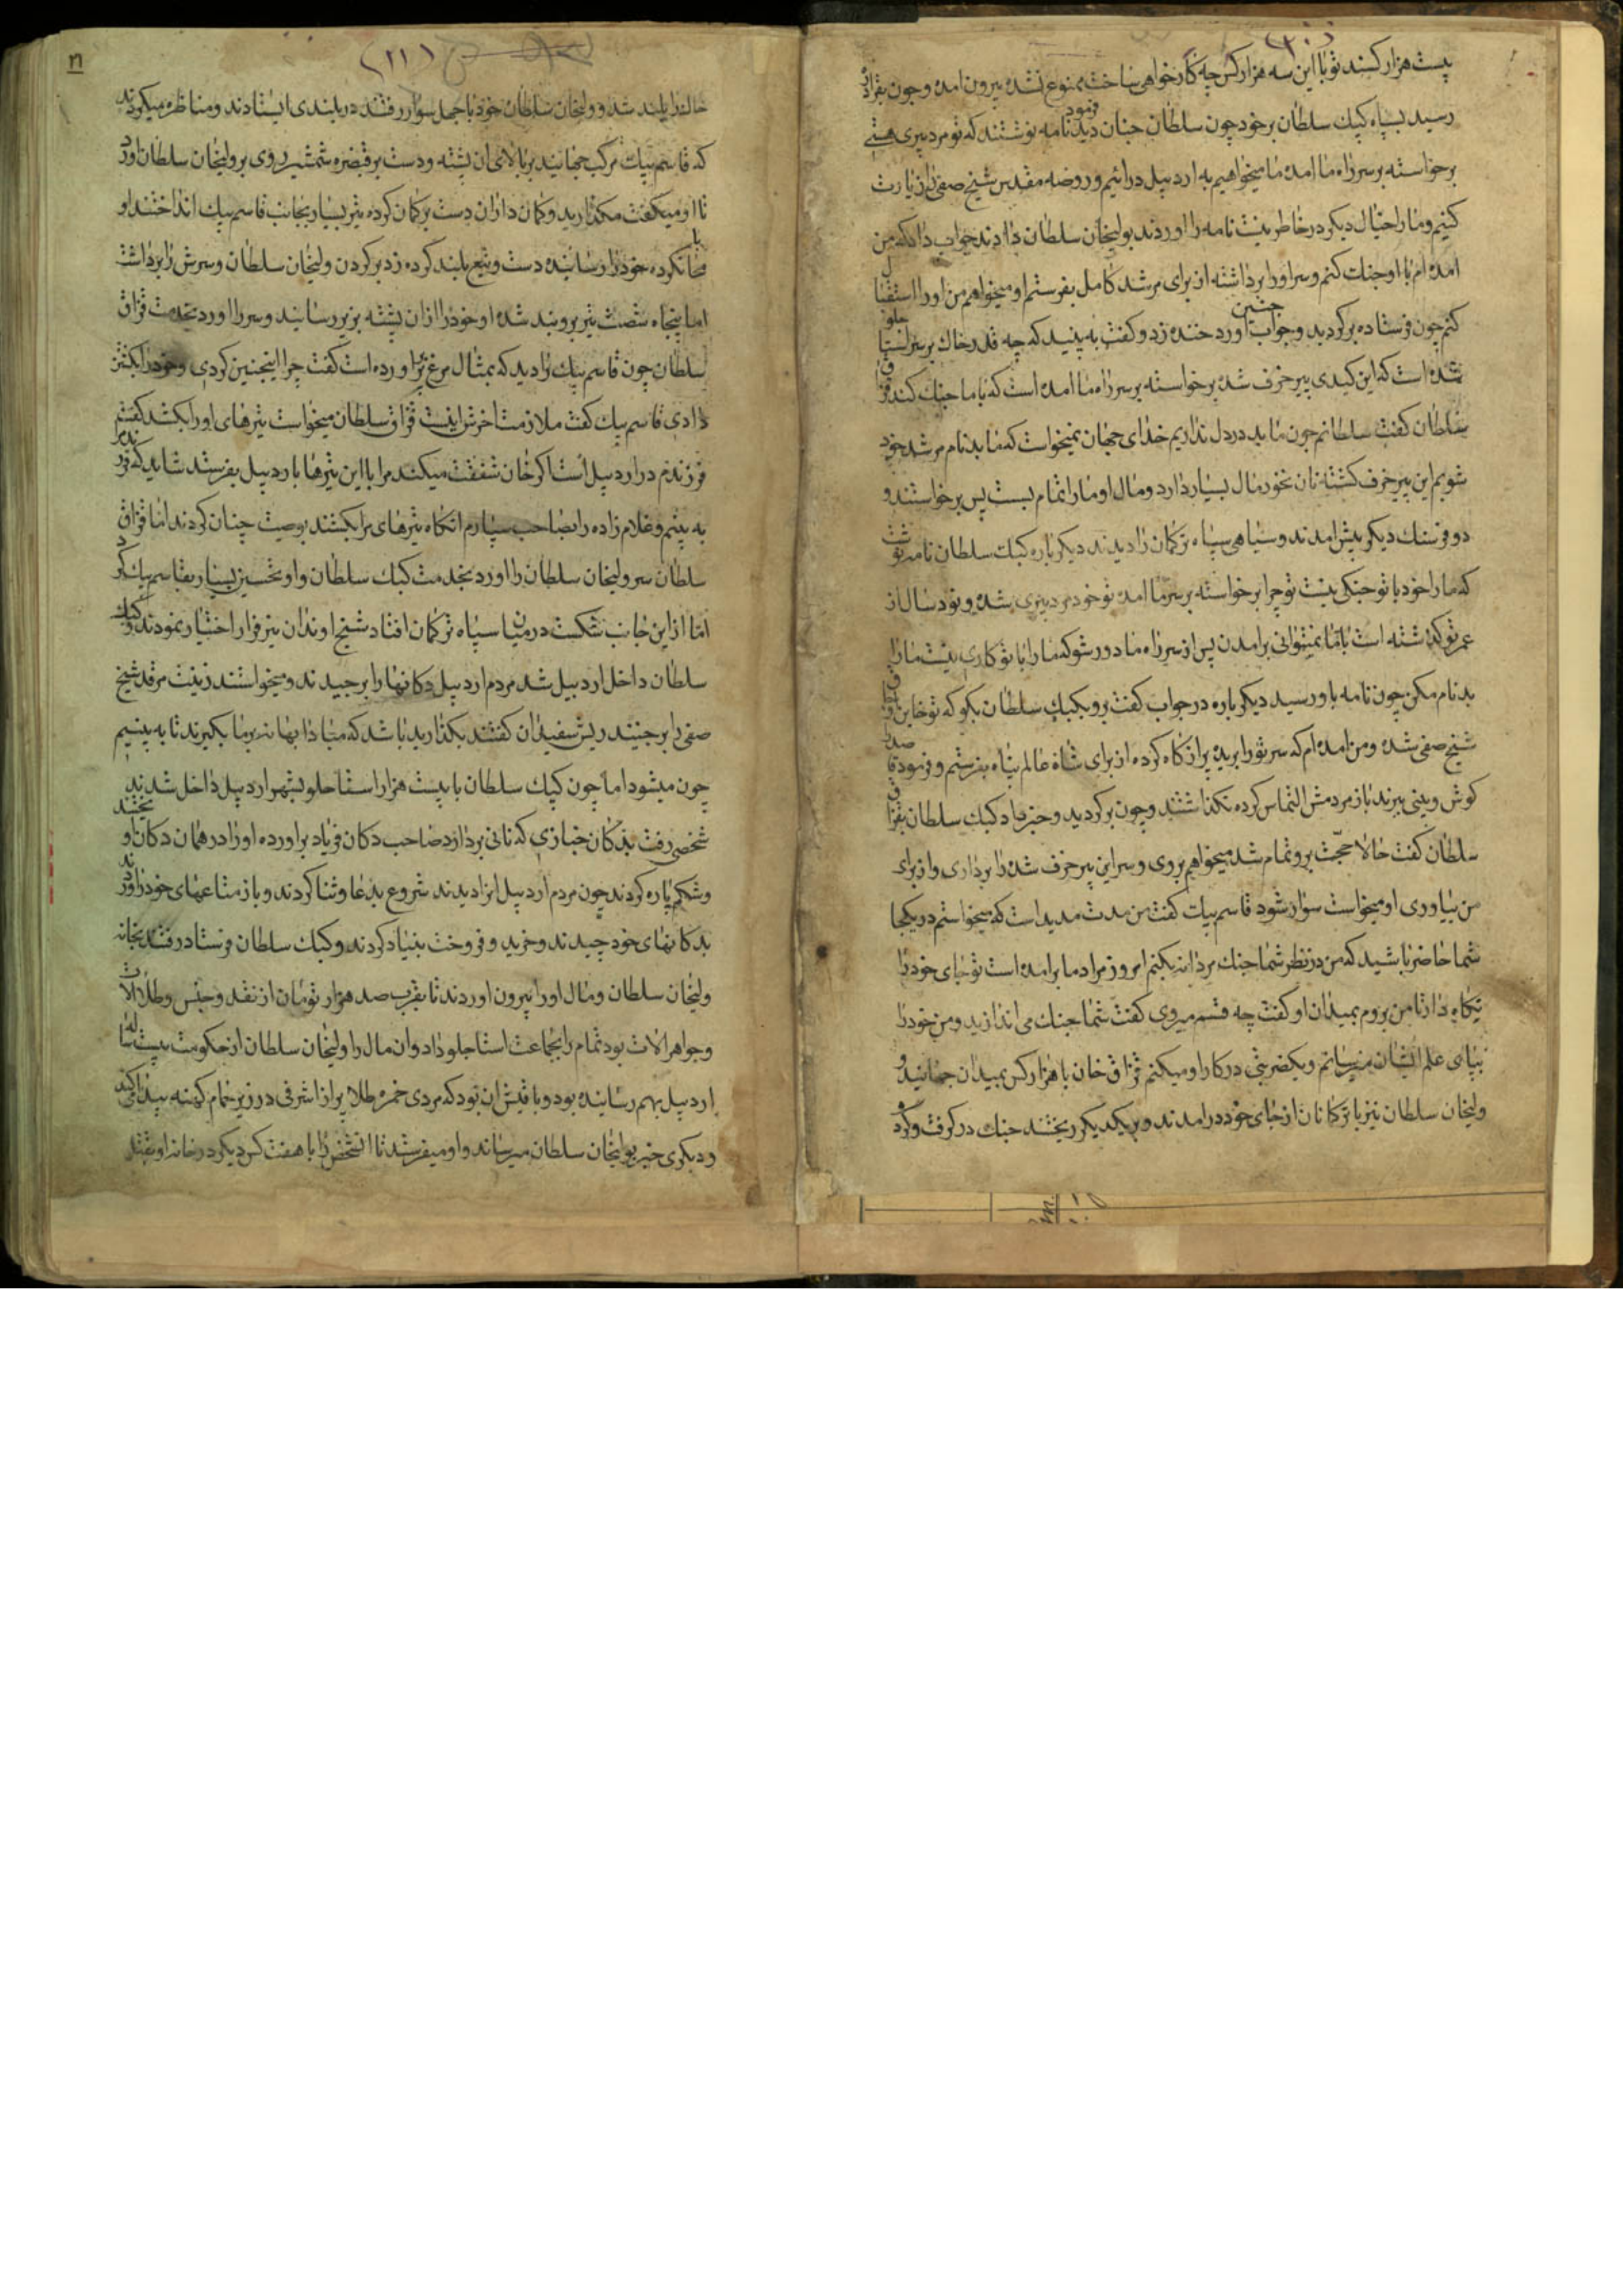 بیست هزار کسند تو با این سه هزار کس چه کار خواهی ساخت ممنوع نشده بیرون امده و چون بقراق
رسید بسپاه کپک سلطان برخورد چون سلطان چنان دید فرمود نامه نوشتند که تو مرد پیری هستی
برخواسته بر سر راه ما امده ما میخواهیم به اردبیل درائیم و روضه مقدس شیخ صفی را زیارت
کنیم و ما را خیال دیکر در خاطر نیست نامه را اوردند بولیخان سلطان دادند جواب داد که من
امده ام با او جنک کنم و سر او را برداشته از برای مرشد کامل بفرستم او میخواهم من او را استقبال
کنم چون فرستاده برکردید و جواب چنین اورد خنده زد و کفت به بینید که چه قدر خاک بر سر استاجلو
شده است که این کیدی پیر خرف شده برخواسته بر سر راه ما امده است که با ما جنک کند قزاق
سلطان کفت سلطانم چون ما بد در دل نداریم خدای جهان نمیخواست که ما بدنام مرشد خود
شویم این پیر خرف کشته نان نخور مال بسیار دارد و مال او ما را تمام بست پس برخواستند و
دو فرسنک دیکر پیش امدند و سیاهی سپاه ترکمان را دیدند دیکر باره کپک سلطان نامه نوشت
که ما را خود با تو جنکی نیست تو چرا برخواسته بر سر ما امده تو خود مرد پیری شده و نود سال از
عمر تو کذشته است با ما نمیتوانی برامدن پس از سر راه ما دور شو که ما را با تو کاری نیست ما را
بدنام مکن چون نامه باو رسید دیکر باره در جواب کفت برو بکپک سلطان بکو که تو خاین
شیخ صفی شده و من امده ام که سر تو را بریده پر از کاه کرده از برای شاه عالم پناه بفرستم و فرمود قاصد را
کوش و بینی ببرند باز مردمش التماس کرده نکذاشتند و چون برکردید و خبر داد کپک سلطان بقزاق
سلطان کفت حالا حجت برو تمام شد میخواهم بروی و سر این پیر خرف شده را برداری و از برای
من بیاوری او میخواست سوار شود قاسم بیک کفت من مدت مدید است که میخواستم در یکجا
شما حاضر باشید که من در نظر شما جنک مردانه بکنم امروز مراد ما برامده است تو جای خود را
نکاه دار تا من بروم بمیدان او کفت چه قسم میروی کفت شما جنک می اندازید و من خود را
بپای علم ایشان میرسانم و یک ضربتی در کار او میکنم قزاق خان با هزار کس بمیدان جهانید و
ولیخان سلطان نیز با ترکمانان از جای خود درامدند و بر یکدیکر ریختند جنک در کرفت و کرد
(۲۱)
خاک را بلند شد و ولیخان سلطان خود با چهل سوار رفتند در بلندی ایستادند و مناظره میکردند
که قاسم بیک مرکب جهانید بر بالای ان پشته و دست بر قبضه شمشیر روی بر ولیخان سلطان اورد
تا او میکفت مکذارید و کمان داران دست بر کمان کرده تیر بسیار بجانب قاسم بیک انداختند او
خود را رسانیده دست و تیغ بلند کرده زد بر کردن ولیخان سلطان و سرش را برداشت
اما پنجاه شصت تیر برو بند شده او خود را از ان پشته بزیر رسانید و سر را اورد بخدمت قزاق
سلطان چون قاسم بیک را دید که بمثال مرغ پر اورده است کفت چرا اینچنین کردی و خود را بکشتن
دادی قاسم بیک کفت ملازمت اخرش اینست قزاق سلطان میخواست تیرهای او را بکشد کفت
فرزندم در اردبیل است اکر خان شفقت میکند مرا با این تیرها باردبیل بفرستد شاید که فرزندم را
به بینم و غلام زاده را بصاحب سپارم انکاه تیرهای مرا بکشند بوصیت چنان کردند اما قزاق
سلطان سر ولیخان سلطان را اورد بخدمت کپک سلطان و او تحسین بسیار بقاسم بیک کرد
اما از این جانب شکست در میان سپاه ترکمان افتاد شیخ اوندان نیز فرار اختیار نمودند و کپک
سلطان داخل اردبیل شد مردم اردبیل دکانها را برچیدند و میخواستند زینت مرقد شیخ
صفی را برچینند ریش سفیدان کفتند بکذارید باشد که مبادا بهانه بر ما بکیرند تا به بینیم
چون میشود اما چون کپک سلطان با بیست هزار استاجلو بشهر اردبیل داخل شدند
شخصی رفت بدکان خبازی که نانی بردارد صاحب دکان فریاد براورده او را در همان دکان او
و شکم پاره کردند چون مردم اردبیل انرا دیدند شروع بدعا و ثنا کردند و باز متاعهای خود را اوردند
بدکانهای خود چیدند و خرید و فروخت بنیاد کردند و کپک سلطان فرستاد رفتند بخانه
ولیخان سلطان و مال او را بیرون اوردند تا بقرب صد هزار تومان از نقد و جنس و طلا الات
و جواهر الات بود تمام را بجماعت استاجلو داد و ان مال را ولیخان سلطان از حکومت بیست ساله
اردبیل بهم رسانیده بود و باقیش ان بود که مردی خمره طلا پر از اشرفی در زیر حمام کهنه پیدا میکند
و دیکری خبر بولیخان سلطان میرساند و او میفرستد تا انشخص را با هفت کس دیکر در خانه او بقتل